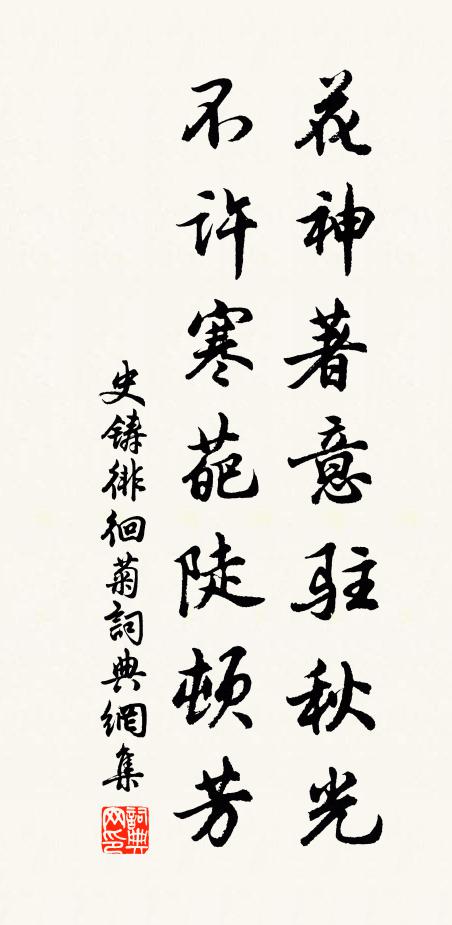 花神著意駐秋光
不許寒葩陡頓芳
史鑄徘徊菊詞典網集
詞典网印